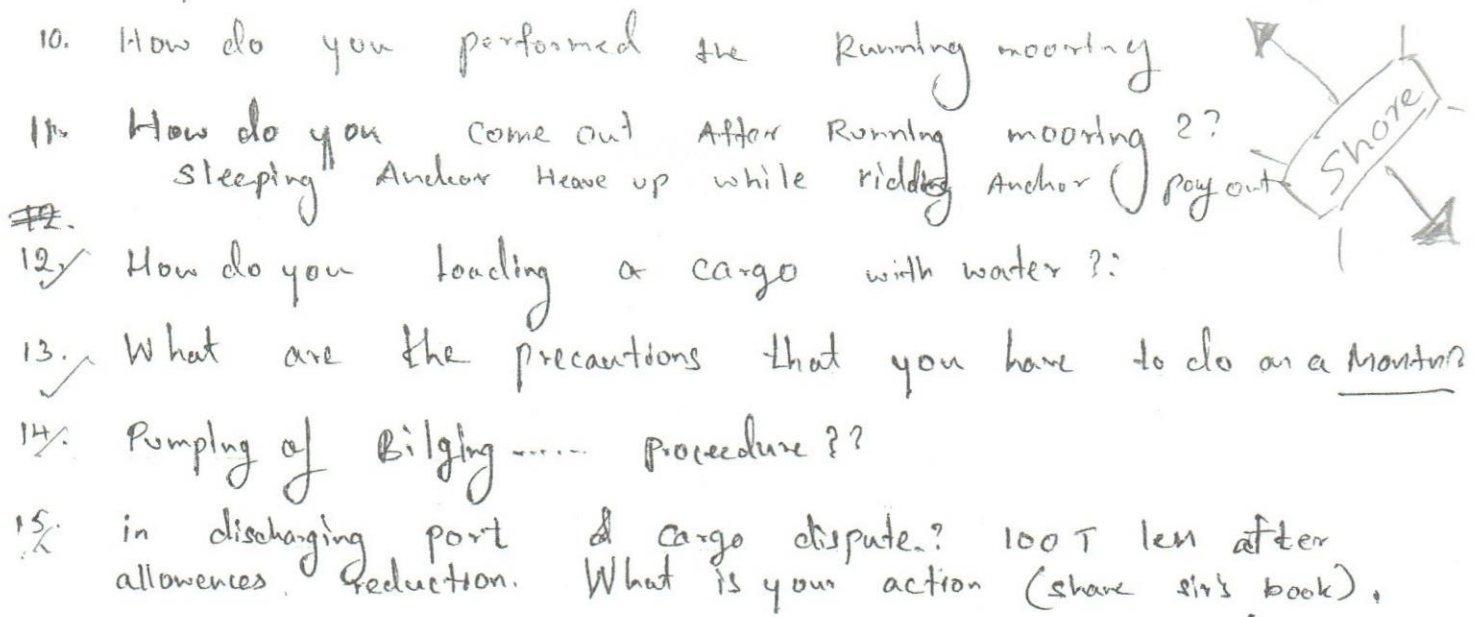 10. How do you performed the Running mooring
11. How do you come out After Running mooring ??
Sleeping Anchor Heave up while ridding Anchor pay out
Shore
12.
12. How do you loading a cargo with water ?:
13. What are the precautions that you have to do on a
14. Pumping of Bilging ...... proceedure ??
15. in discharging port & cargo dispute.? 100 T less after
allowences reduction. What is your action (share sir's book).